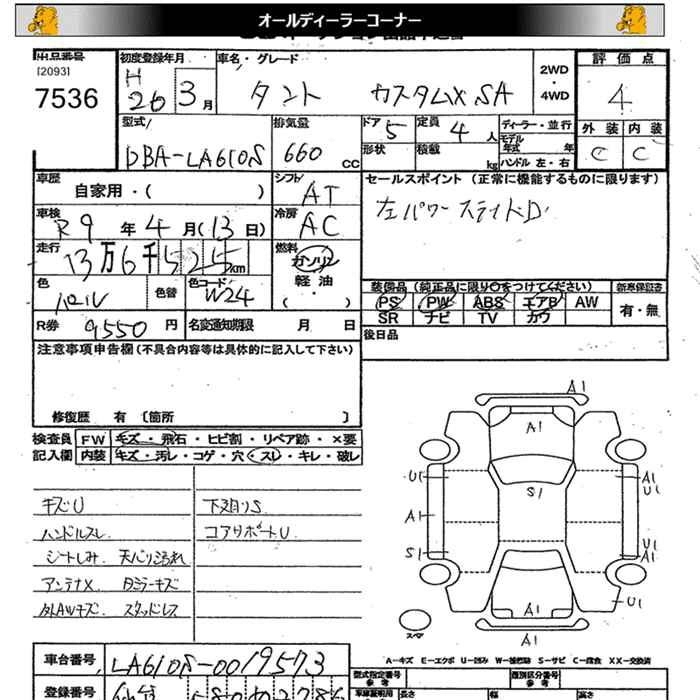 オールディーラーコーナー
出品番号
[2093]
7536
初度登録年月
H 26 3月
車名・グレード
タント カスタムX SA
2WD
・
4WD
評価点
4
外装 内装
C C
型式
DBA-LA610S
排気量
660 cc
ドア 5
定員 4 人
形状 積載 kg
ディーラー・並行
モデル年式 年
ハンドル 左・右
車歴
自家用・( )
シフト
AT
セールスポイント (正常に機能するものに限ります)
左パワースライドD
車検
R9年4月(13日)
冷房
AC
走行
13万6千525km
燃料
ガソリン
軽油
( ・ )
色
パール
色替
色コード
W24
装備品 (純正品に限り○をつけてください)
PS PW ABS エアB AW
SR ナビ TV カワ
新車保証書
有・無
R券 9,550円
名変通知期限 月 日
後日品
注意事項申告欄(不具合内容等は具体的に記入して下さい)
修復歴 有 〔箇所 〕
検査員記入欄
FW キズ・飛石・ヒビ割・リペア跡・×要
内装 キズ・汚レ・コゲ・穴・スレ・キレ・破レ
キズU
下廻りS
ハンドルスレ
コアサポートU
シートしみ 天バリ汚れ
アンテナX Dミラーキズ
外AWキズ スタッドレス
A1
A1
U1
A1
S1
S1
A1
U1
U1
A1
U1
A1
A1
スペア
A-キズ E-エクボ U-凹み W-補修跡 S-サビ C-腐食 XX-交換済
車台番号
LA610S-0019573
型式指定番号
類別区分番号
登録番号
長さ 幅 高さ